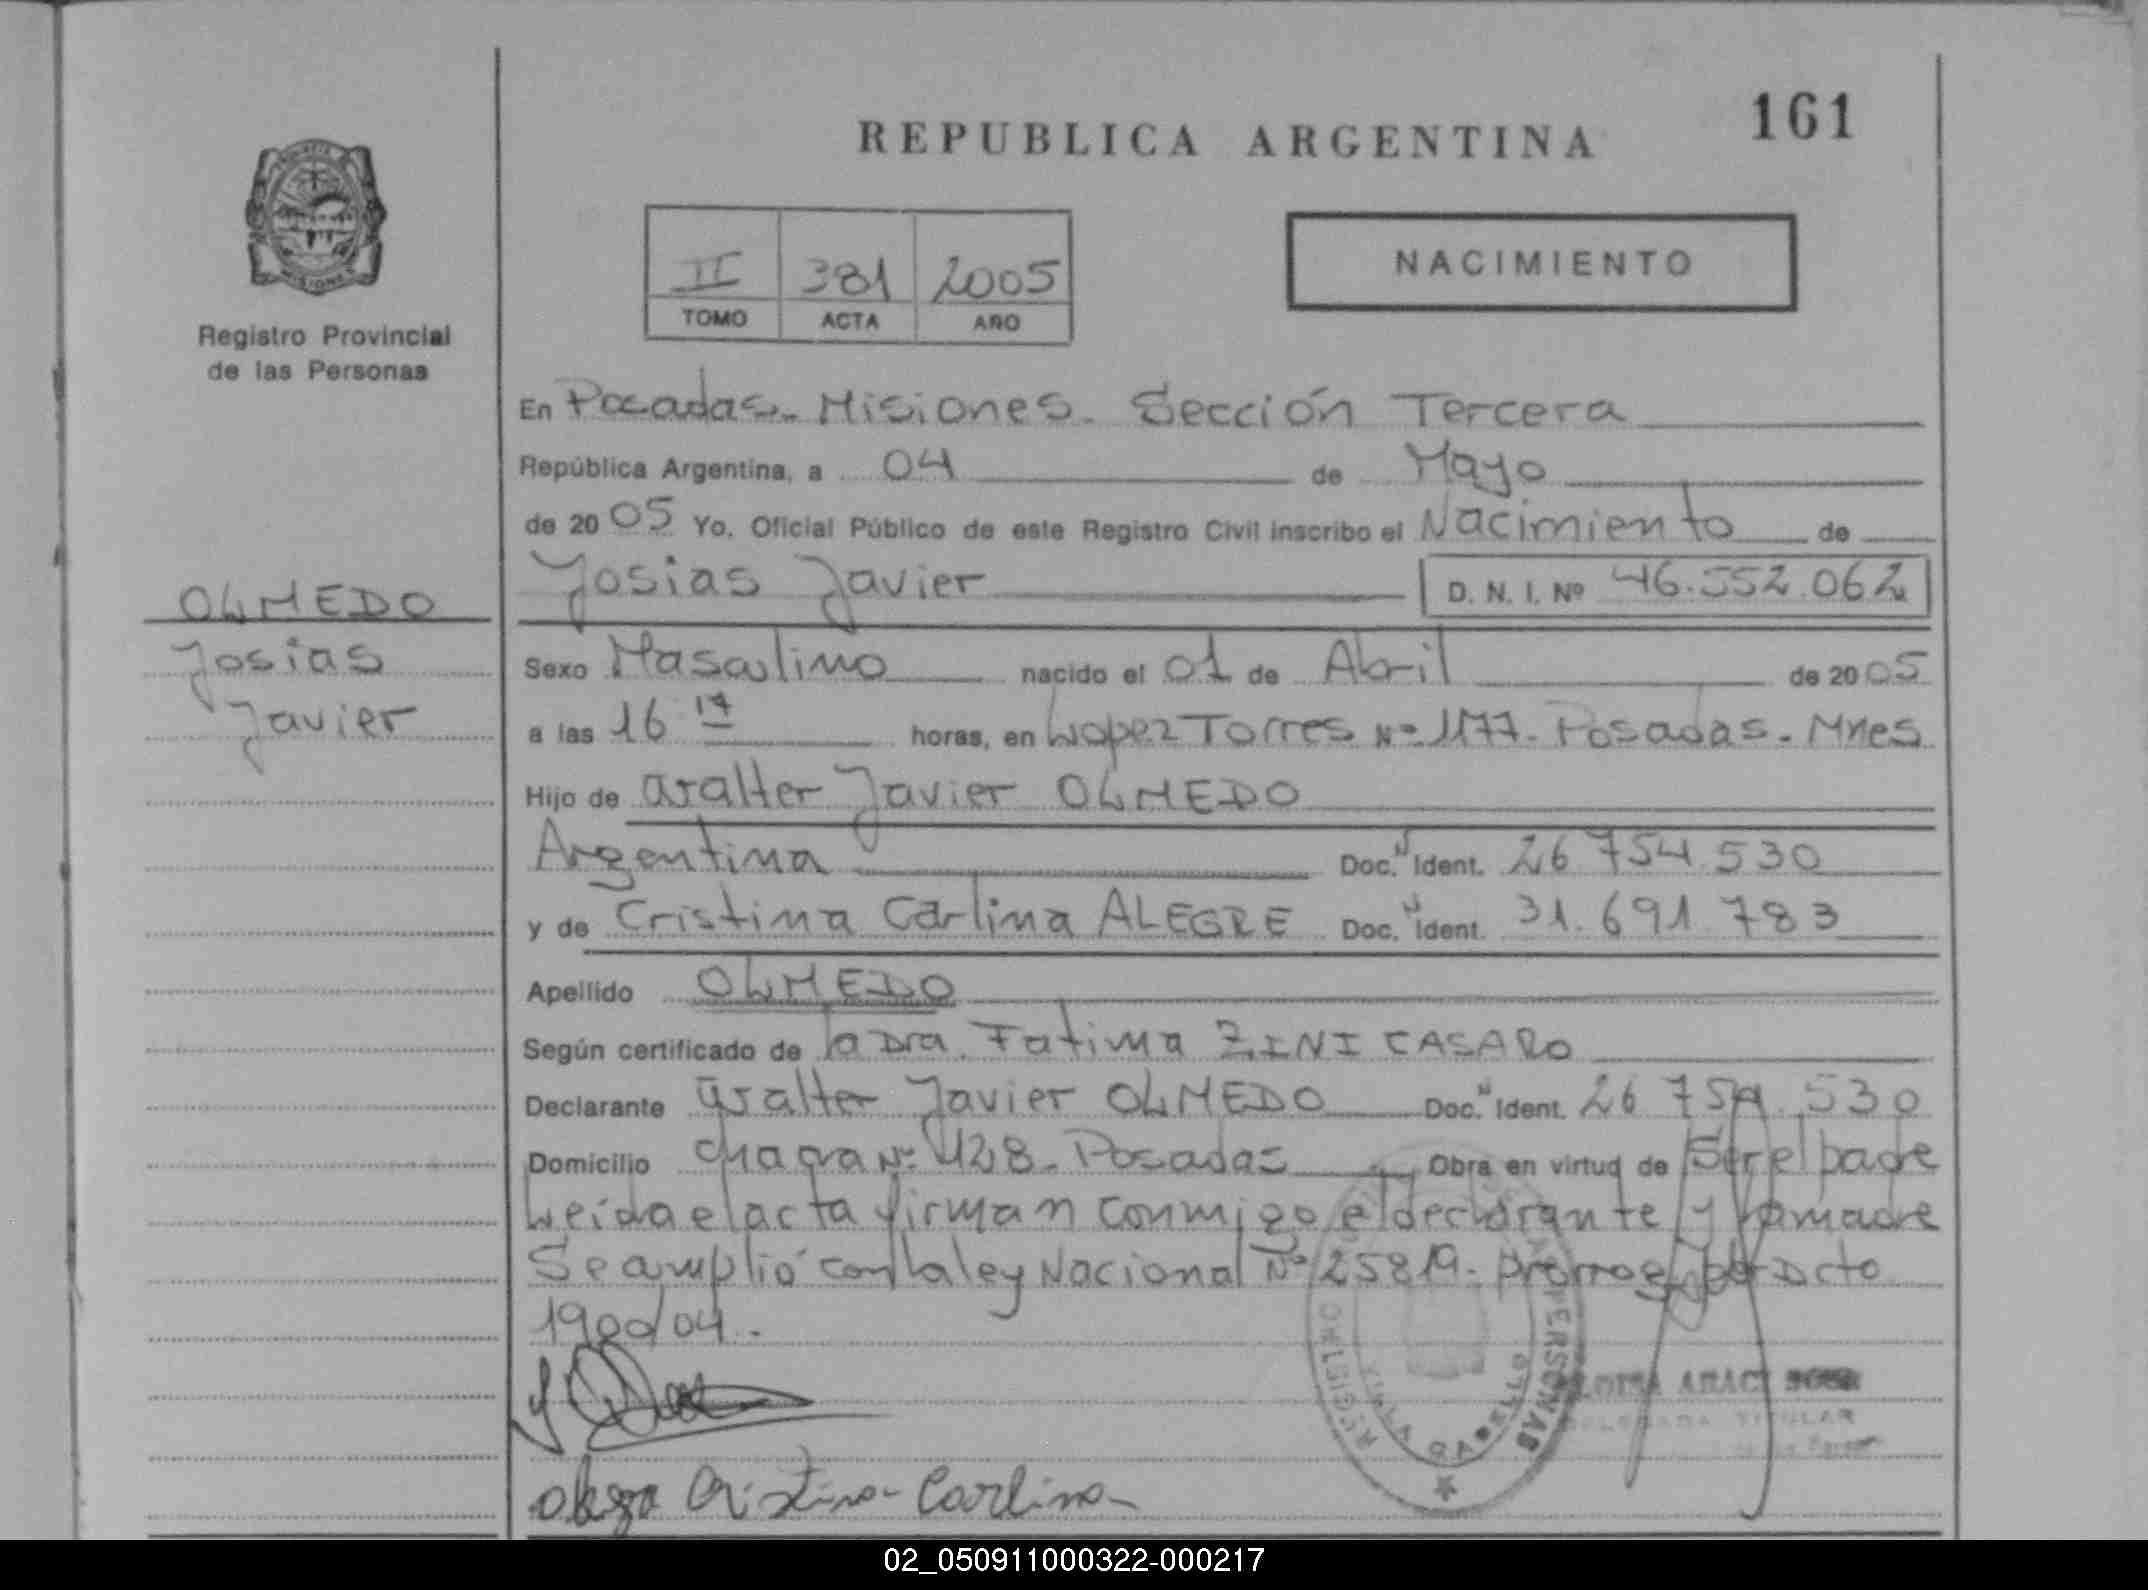 REPUBLICA ARGENTINA
161
Registro Provincial
de las Personas
II 381 2005
TOMO ACTA AÑO
NACIMIENTO
En Posadas - Misiones - Sección Tercera
República Argentina, a 04 de Mayo
de 2005 Yo, Oficial Público de este Registro Civil inscribo el Nacimiento de
Josias Javier D. N. I. Nº 46.552.062
OLMEDO
Josias
Javier
Sexo Masculino nacido el 01 de Abril de 2005
a las 16 17 horas, en Lopez Torres Nº 1177 - Posadas - Mnes
Hijo de Walter Javier OLMEDO
Argentina Doc. N Ident. 26 754 530
y de Cristina Carlina ALEGRE Doc. N Ident. 31.691.783
Apellido OLMEDO
Según certificado de la Dra. Fatima ZINI CASARO
Declarante Walter Javier OLMEDO Doc. N Ident. 26 754 530
Domicilio Chacra Nº 428 - Posadas Obra en virtud de Ser el padre
Leida el acta firman conmigo el declarante y la madre
Se amplió con la ley Nacional Nº 25819 - Prorrog por Dcto
1900/04.
REGISTRO PERSONAS
DELEGADA TITULAR
Cristina Carlina
02_050911000322-000217